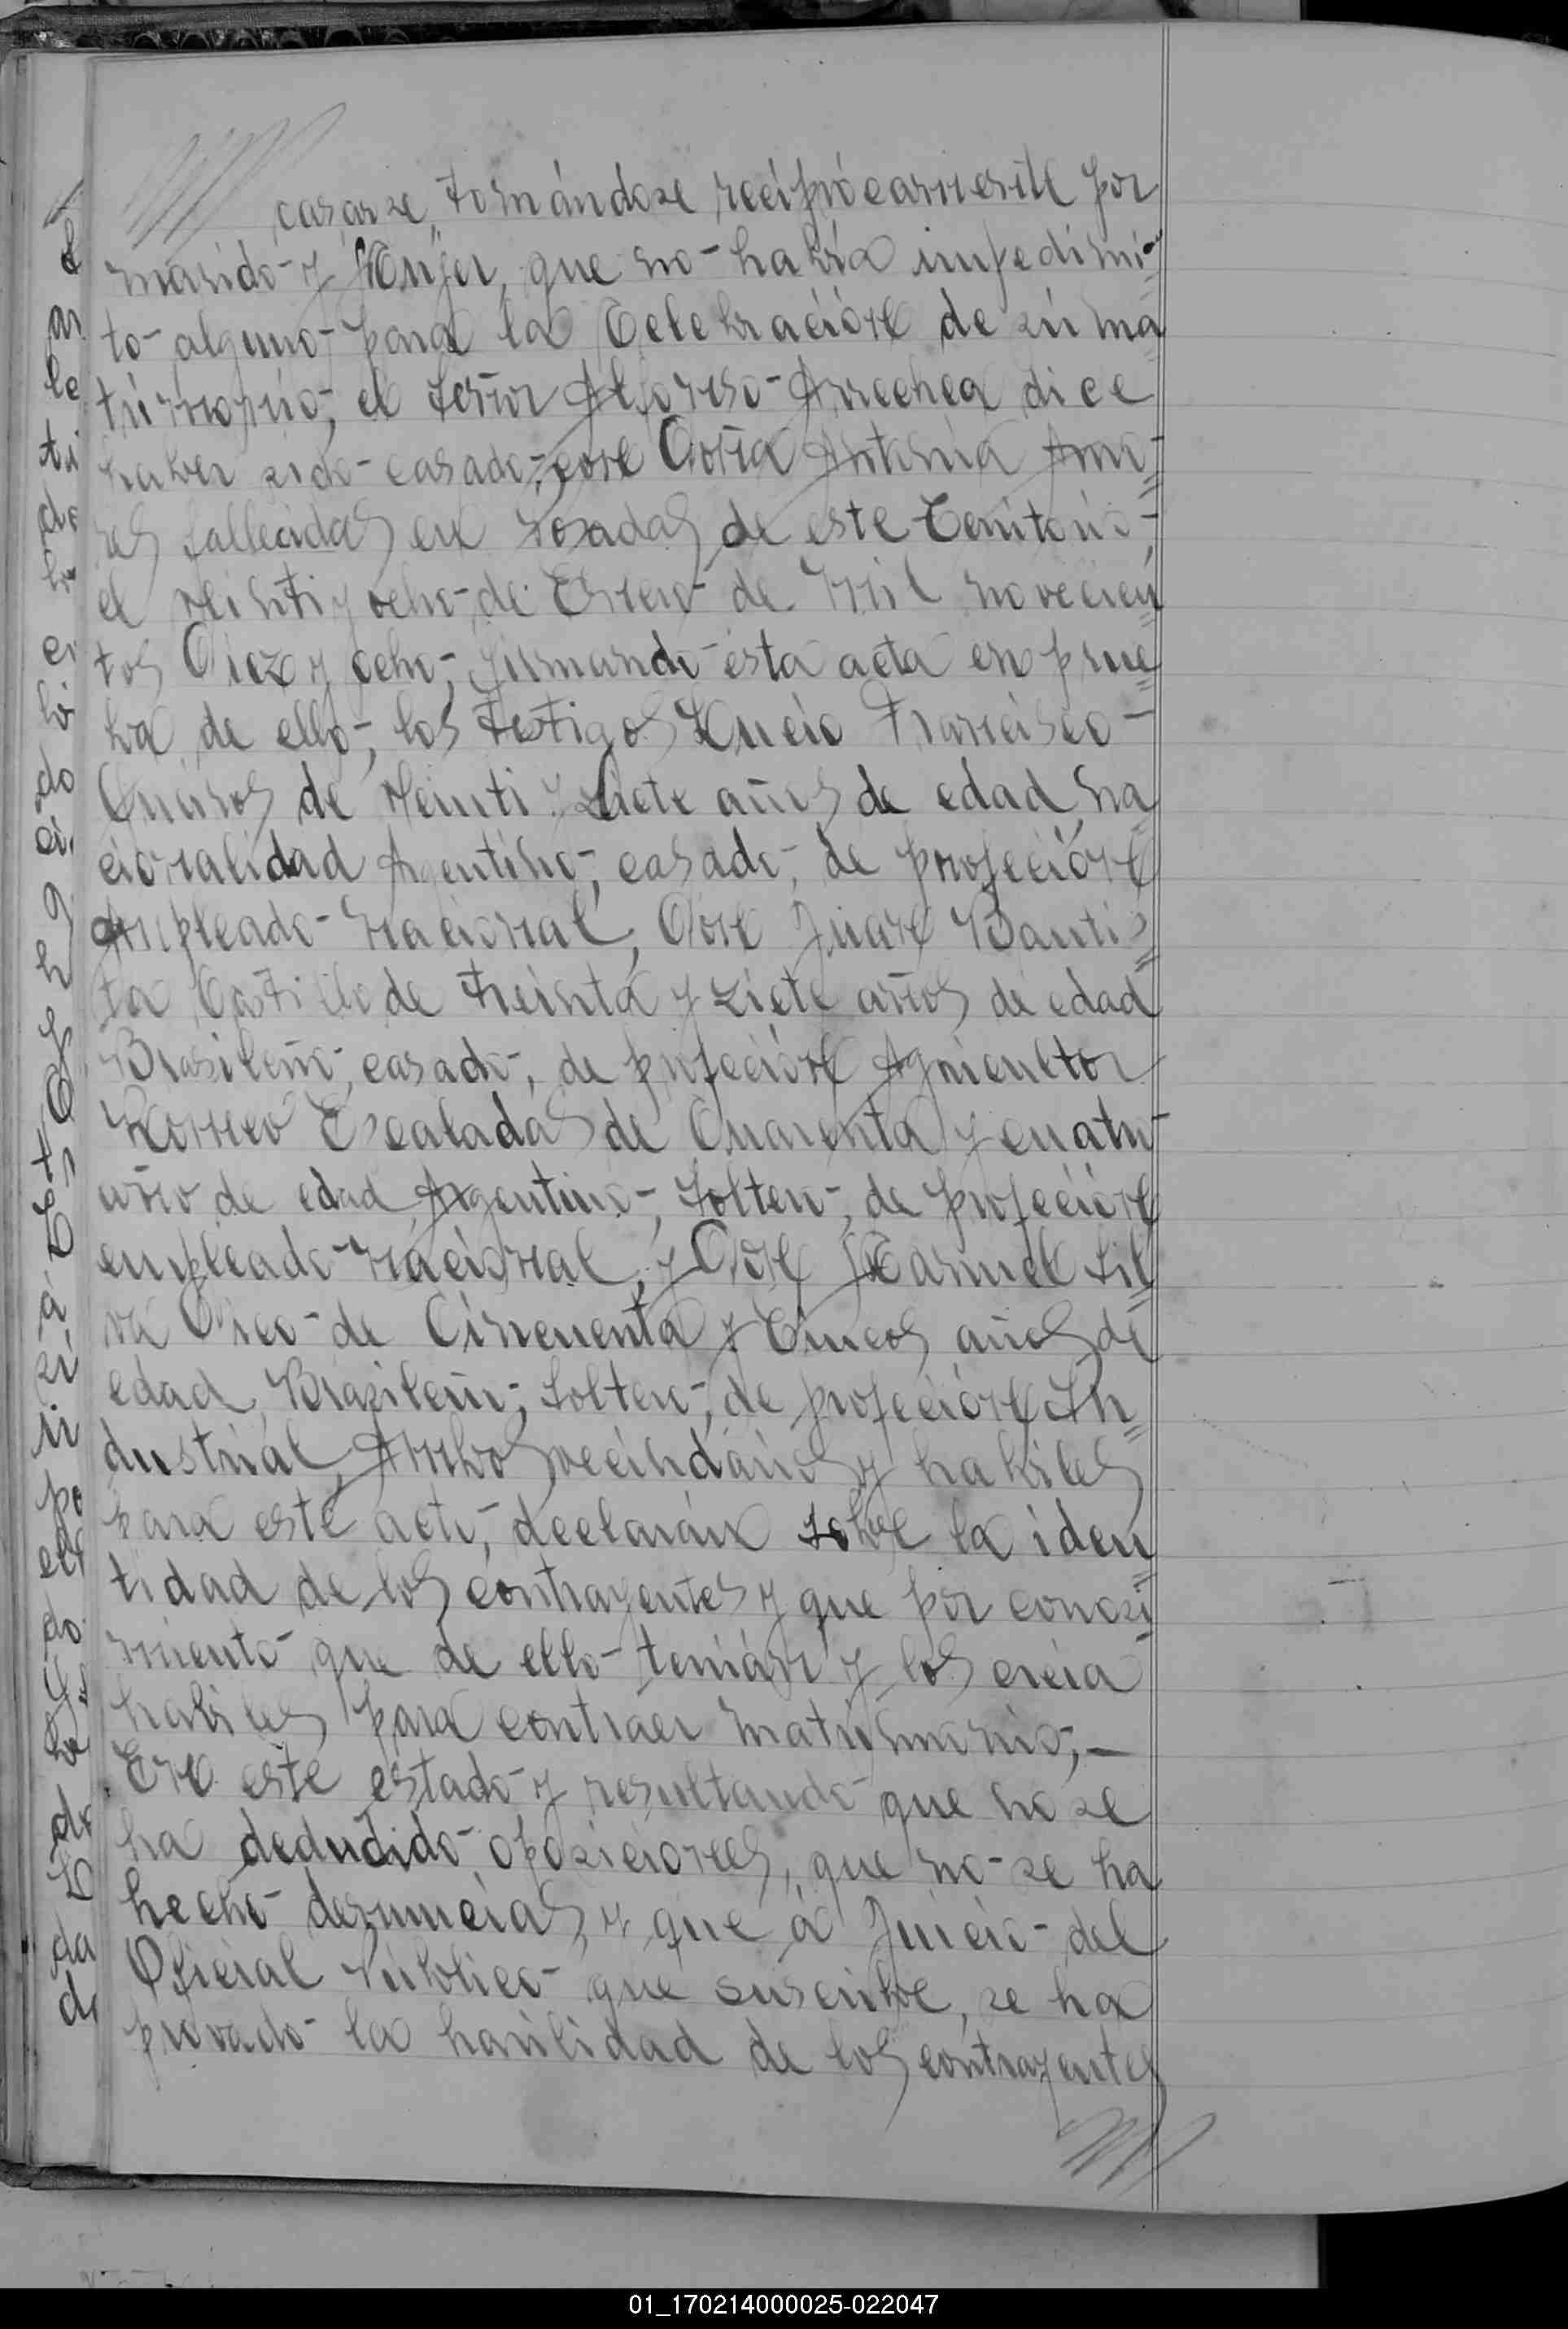 casarse, tomándose recíprocamente por
marido y Mujer, que no habia impedimi
to alguno para la Celebración de sú ma
trimonio, el señor Alfonso Arrechea dice
haber sido casado, con Doña Antonia
fallecidas en Posadas de este Territorio,
el veinti y ocho de Enero de Mil novecien
tos Diez y ocho, firmando ésta acta en prue
ba de ello, los testigos Lucio Francisco
Quiros de veinti y siete años de edad, na
cionalidad Argentino, casado, de profeción
Empleado nacional, Don Juan Bautis
ta Castillo de treinta y siete años de edad
Brasileño, casado, de profeción Agricultor
Escaladas de Cuarenta y cuatro
año de edad Argentino, soltero, de profeción
empleado nacional, y Don Manuel Sil
va de Cincuenta y Cincos años de
edad, Brasileño, soltero, de profeción In
dustrial, Ambos vecindários y habiles
para este acto, declarán sobre la iden
tidad de los contrayentes y que por conosi
miento que de ello tenián y los creia
habiles para contraer matrimonio,
En este estado y resultando que no se
ha deducido oposiciones, que no se ha
hecho denuncias, y que á Juicio del
Oficial Público que suscribe, se ha
provado la havilidad de los contrayentes
01_170214000025-022047